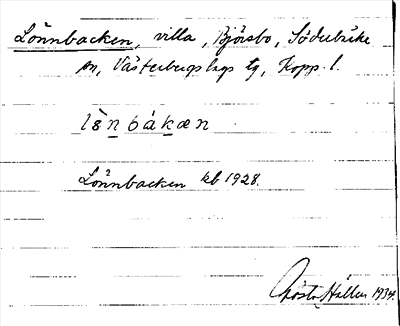 Lönnbacken, villa, Björsbo, Söderbärke
sn, Västerbergslags tg, Kopp. l.
lø̀nbákæn
Lönnbacken kb 1928.
Gösta Hallén 1934.